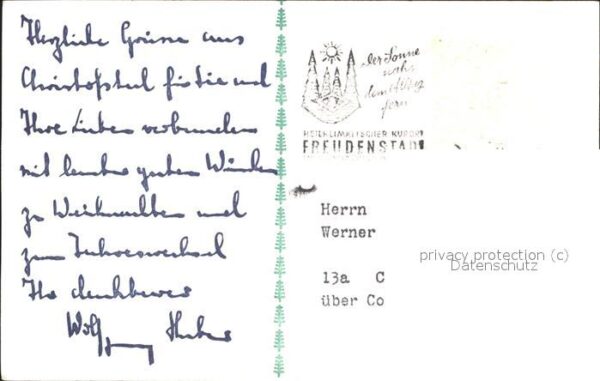 Herzliche Grüsse aus
Christophstal für Sie und
Ihre Lieben verbunden
mit besten guten Wünschen
zu Weihnachten und
zum Jahreswechsel
Ihr dankbarer
Wolfgang Huber
der Sonne
nah
dem Alltag
fern
HEILKLIMATISCHER KURORT
FREUDENSTADT
Herrn
Werner
13a C
über Co
privacy protection (c)
Datenschutz